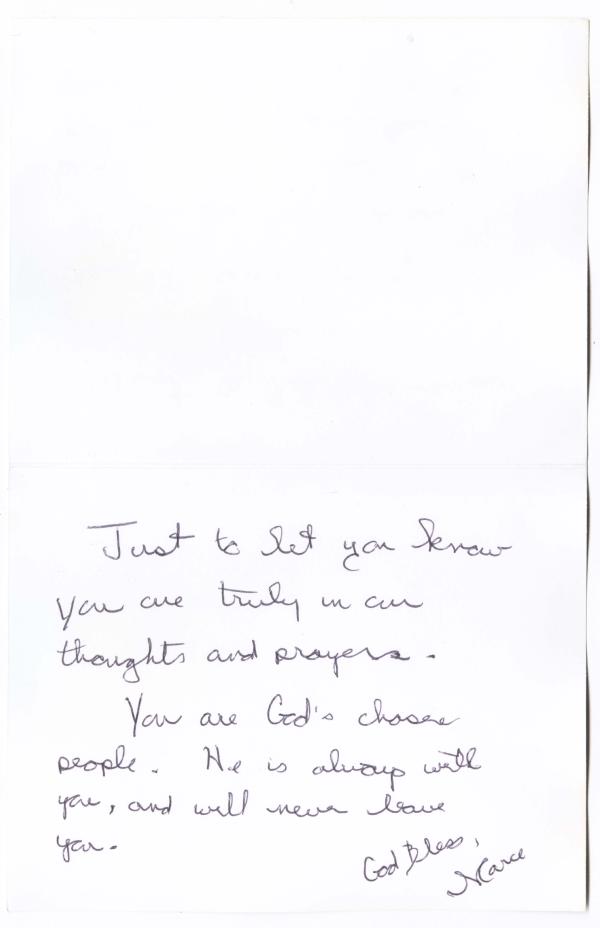 Just to let you know
you are truly in our
thoughts and prayers.
You are God's chosen
people. He is always with
you, and will never leave
you.
God Bless,